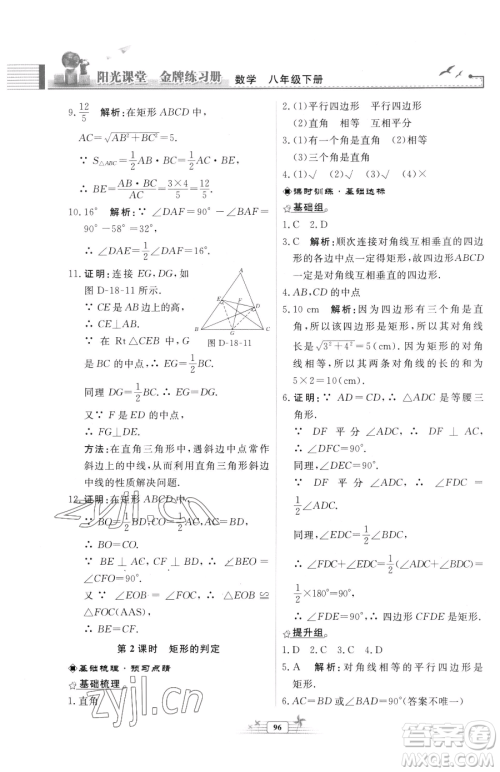 阳光课堂 金牌练习册 数学 八年级下册
9. 12/5 解析:在矩形 ABCD 中
AC=√(AB²+BC²)=5.
∵ S△ABC=1/2AB·BC=1/2AC·BE,
∴ BE=AB·BC/AC=3×4/5=12/5.
10. 16° 解析:∠DAF=90°-∠DFA=
90°-58°=32°.
∴ ∠DAE=1/2∠DAF=16°.
11. 证明:连接 EG,DG,如
图 D-18-11 所示.
∵ CE 是 AB 边上的高,
∴ CE⊥AB.
∵ 在 Rt△CEB 中,G
是 BC 的中点,∴ EG=1/2BC.
图 D-18-11
同理 DG=1/2BC. ∴ EG=DG.
又∵ F 是 ED 的中点,
∴ FG⊥DE.
方法:在直角三角形中,遇斜边中点常作
斜边上的中线,进而利用直角三角形斜边
中线的性质解决问题.
12. 证明:在矩形 ABCD 中,
∵ BO=1/2BD,CO=1/2AC,
∴ BO=CO.
∵ BE⊥AC,CF⊥BD,∴ ∠BEO=
∠CFO=90°.
又∵ ∠EOB=∠FOC,∴ △EOB≌
△FOC(AAS).
∴ BE=CF.
第 2 课时 矩形的判定
基础梳理·预习点睛
基础梳理
1. 直角
2. (1)平行四边形 平行四边形
(2)直角 相等 互相平分 相等
(3)三个角是直角
3. (1)有一个角是直角 (2)对角线相等
(3)有一个角是直角
4. (1)√ (2)√ (3)√ (4)×
课时训练·基础达标
基础组
1. C 2. D
3. C 解析:顺次连接对角线互相垂直的四边
形的各边中点一定得矩形,故原四边形
一定是对角线互相垂直的四边形.
4. AB,CD 的中点
5. 10 cm 解析:因为四边形有三个角是直
角,所以该四边形为矩形,所以其对角线
长为√(3²+4²)=5(cm).因为矩形的对
角线相等,所以这个矩形对角线的长的和是
5×2=10(cm).
6. 证明:∵ AD=CD,∴ △ADC 是等腰三
角形.
∵ DF 平分∠ADC,∴ DF⊥AC,即
∠DFC=90°,∠FDC=1/2∠ADC.
同理,∠CED=90°,∠EDC=1/2∠BDC.
∴ ∠FDC+∠EDC=1/2(∠ADC+∠BDC)=
1/2×180°=90°.
∴ ∠FDE=90°.∴ 四边形 CFDE 是矩形.
提升组
1. D 2. D 3. C 4. C
5. A 解析:对角线相等的平行四边形是
矩形.
6. AC=BD或∠BAD=90°(答案不唯一)
96
zyjl.cn